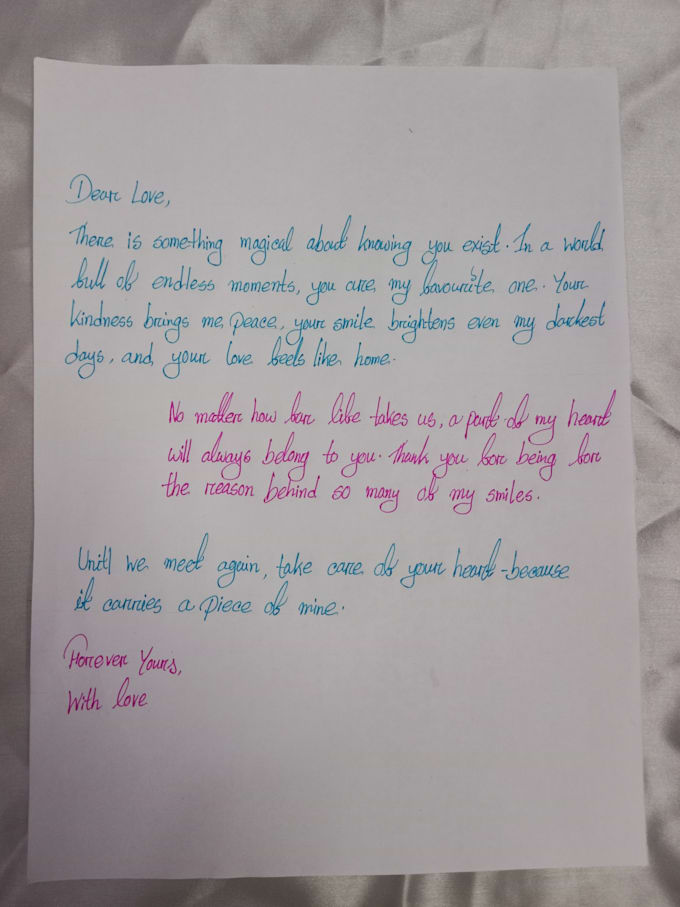 Dear Love,
There is something magical about knowing you exist. In a world
full of endless moments, you are my favourite one. Your
kindness brings me peace, your smile brightens even my darkest
days, and your love feels like home.
No matter how far life takes us, a part of my heart
will always belong to you. Thank you for being for
the reason behind so many of my smiles.
Until we meet again, take care of your heart-because
it carries a piece of mine.
Forever Yours,
With love